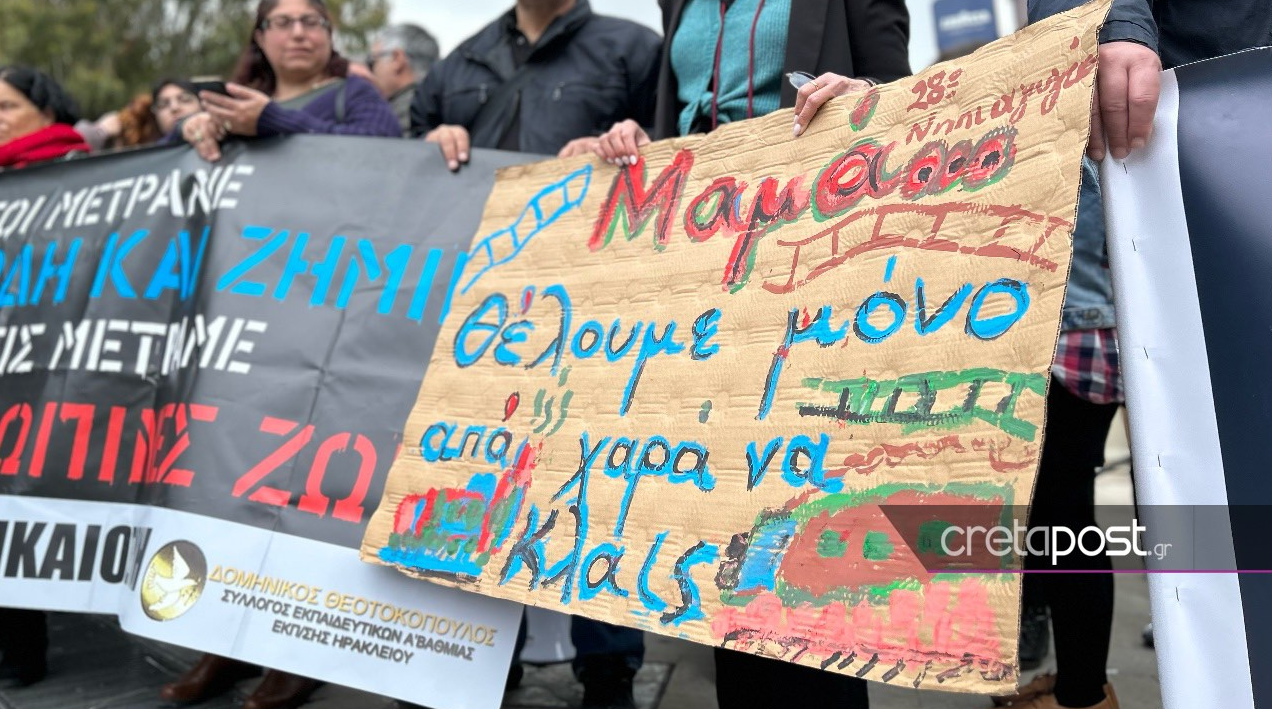 ΜΕΤΡΑΝΕ
ΚΑΙ ΖΗΜΙ
ΜΕΤΡΑΜΕ
ΖΩ
ΔΟΜΗΝΙΚΟΣ ΘΕΟΤΟΚΟΠΟΥΛΟΣ
ΣΥΛΛΟΓΟΣ ΕΚΠΑΙΔΕΥΤΙΚΩΝ Α'ΒΑΘΜΙΑΣ
ΕΚΠ/ΣΗΣ ΗΡΑΚΛΕΙΟΥ
28ο
Νηπιαγωγείο
Μαμά
θέλουμε μόνο
από χαρά να
κλαις
cretapost.gr